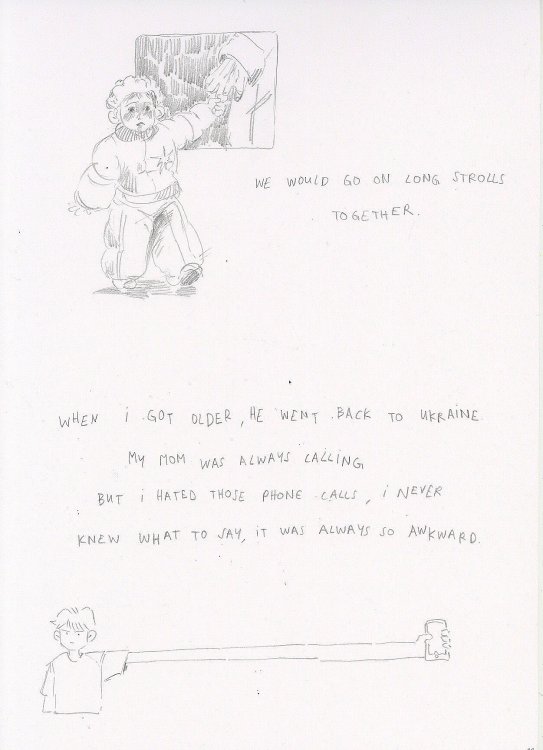 WE WOULD GO ON LONG STROLLS
TOGETHER.
WHEN i GOT OLDER, HE WENT BACK TO UKRAINE.
MY MOM WAS ALWAYS CALLING
BUT i HATED THOSE PHONE CALLS, i NEVER
KNEW WHAT TO SAY, iT WAS ALWAYS SO AWKWARD.